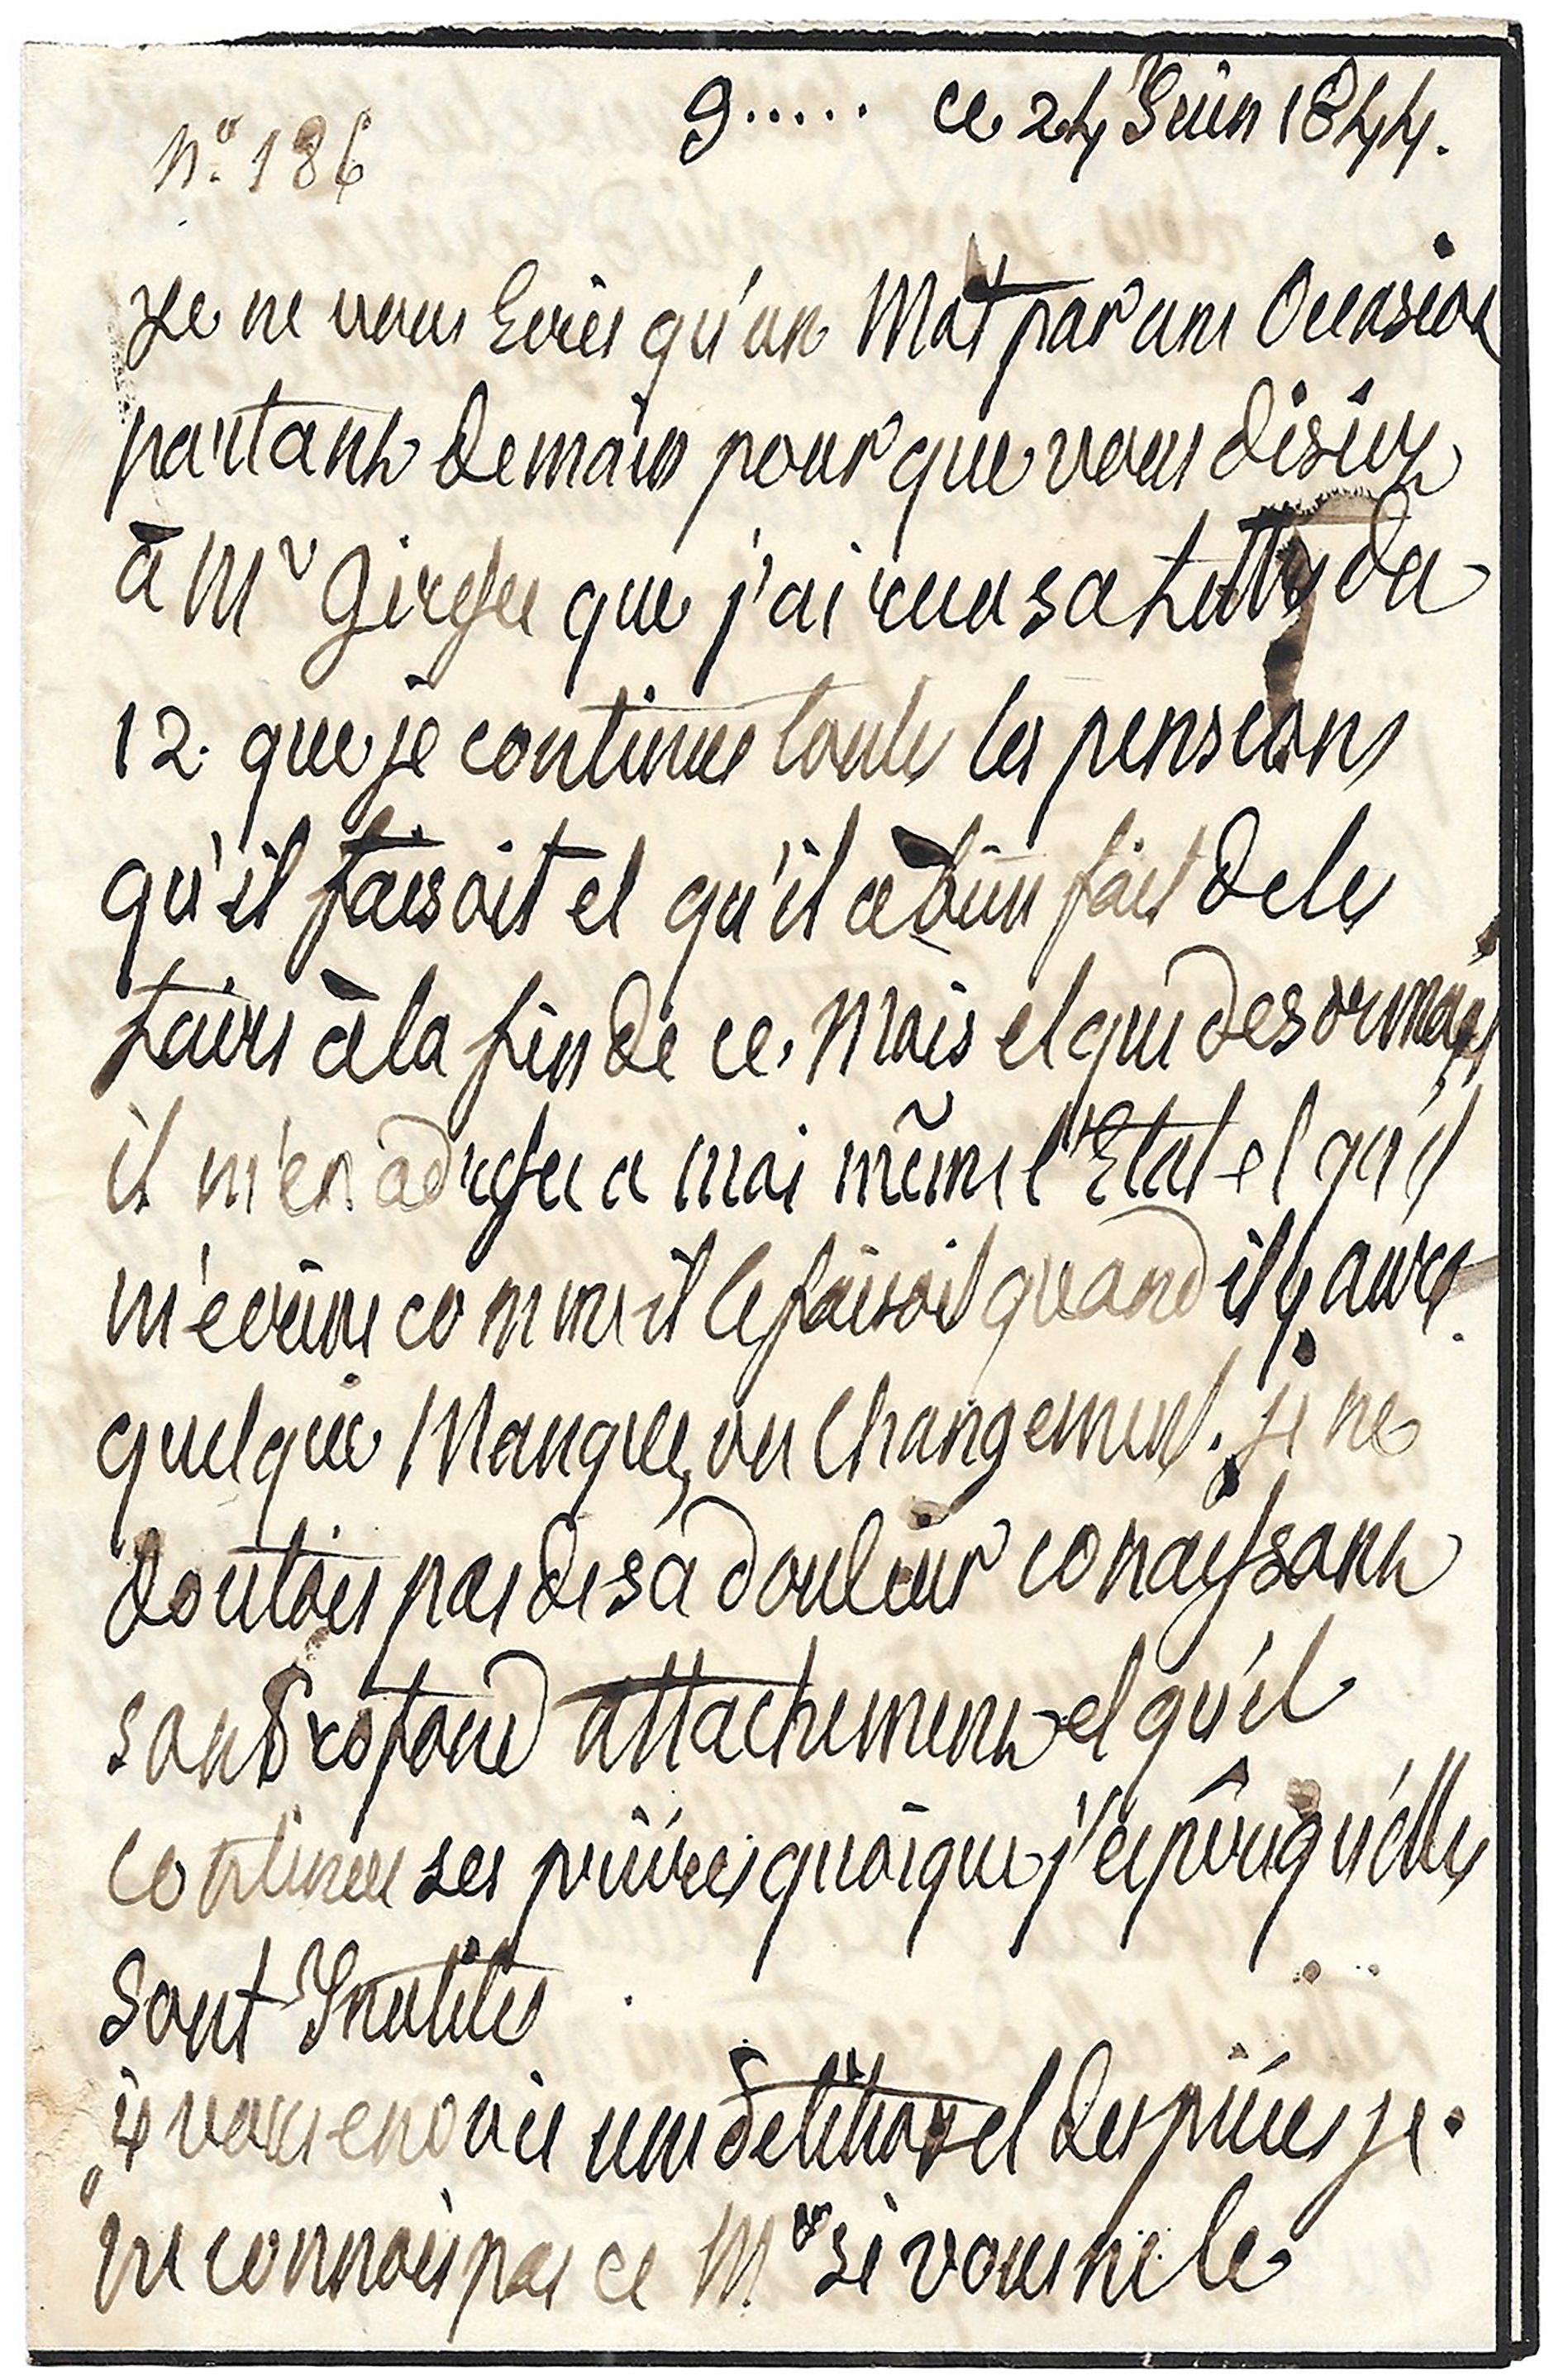 g..... ce 24 Juin 1844.
N.º 186
Je ne vous Ecris qu'un Mot par une Occasion
partant demain pour que vous disiez
à Mr que j'ai reçu sa Lettre du
12. que je continue toute les pensions
qu'il faisoit et qu'il a bien fait de les
faire à la fin de ce. Mois et que desormais
il m'en adresse a moi même l'Etat et qu'il
m'ecrive comme il le faisoit quand il y aura
quelque Manque, ou Changement. je ne
doutois pas de sa douleur conaissant
son Profond attachement et qu'il
continue ses prières quoique j'espère qu'elles
sont Inutiles
je vous envoie une de et des pièces je.
ne connois pas ce Mr si vous ne le